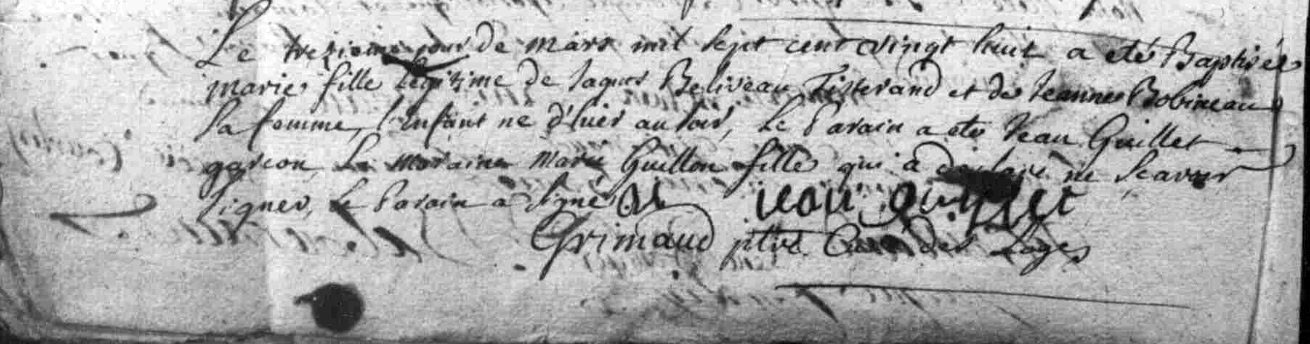 Le trezieme jour de mars mil sept cent vingt huit a eté Baptisée
marie fille legitime de Jaques Beliveau Tisserand et de Jeanne Bobineau
sa femme, l'enfant né d'hier au soir, Le Parain a eté Jean Guillet
garcon, La maraine marie Guillon fille qui a declaré ne scavoir
signer, le Parain a signé
jean guillet
Grimaud ptre Curé des Loges